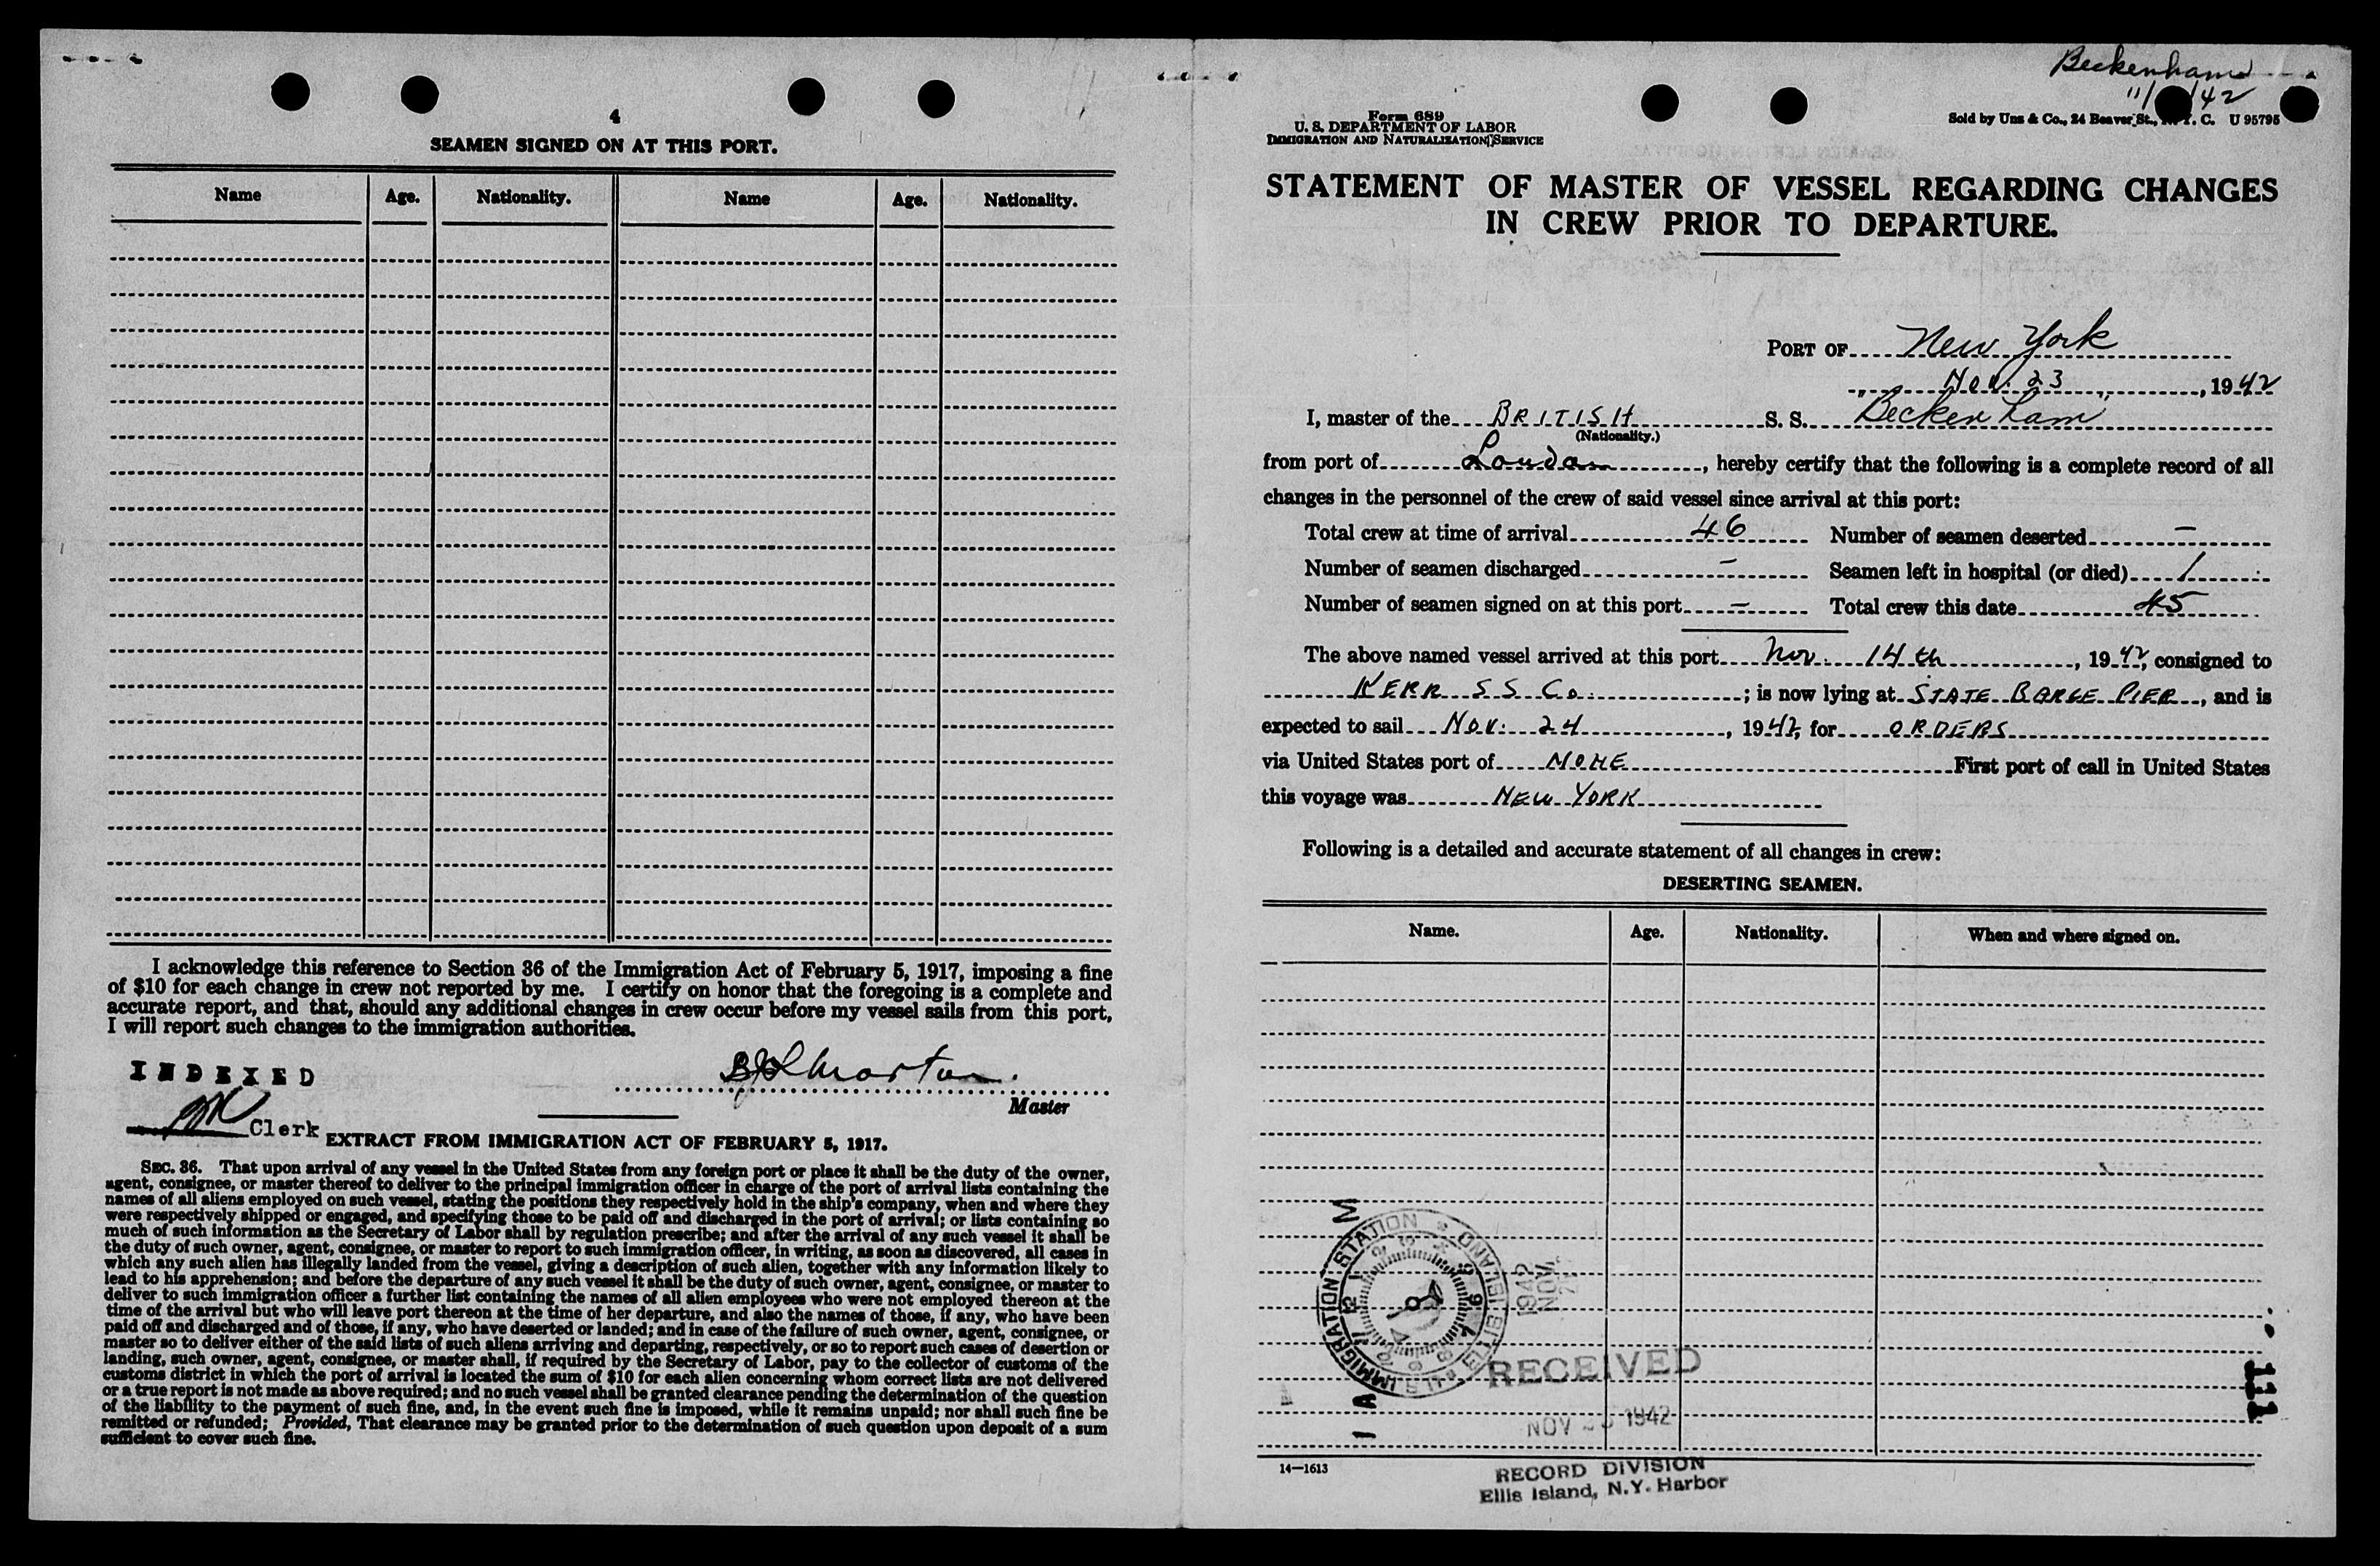 4
SEAMEN SIGNED ON AT THIS PORT.
Name Age. Nationality. Name Age. Nationality.
I acknowledge this reference to Section 36 of the Immigration Act of February 5, 1917, imposing a fine
of $10 for each change in crew not reported by me. I certify on honor that the foregoing is a complete and
accurate report, and that, should any additional changes in crew occur before my vessel sails from this port,
I will report such changes to the immigration authorities.
INDEXED
Master
Clerk
EXTRACT FROM IMMIGRATION ACT OF FEBRUARY 5, 1917.
SEC. 36. That upon arrival of any vessel in the United States from any foreign port or place it shall be the duty of the owner,
agent, consignee, or master thereof to deliver to the principal immigration officer in charge of the port of arrival lists containing the
names of all aliens employed on such vessel, stating the positions they respectively hold in the ship's company, when and where they
were respectively shipped or engaged, and specifying those to be paid off and discharged in the port of arrival; or lists containing so
much of such information as the Secretary of Labor shall by regulation prescribe; and after the arrival of any such vessel it shall be
the duty of such owner, agent, consignee, or master to report to such immigration officer, in writing, as soon as discovered, all cases in
which any such alien has illegally landed from the vessel, giving a description of such alien, together with any information likely to
lead to his apprehension; and before the departure of any such vessel it shall be the duty of such owner, agent, consignee, or master to
deliver to such immigration officer a further list containing the names of all alien employees who were not employed thereon at the
time of the arrival but who will leave port thereon at the time of her departure, and also the names of those, if any, who have been
paid off and discharged and of those, if any, who have deserted or landed; and in case of the failure of such owner, agent, consignee, or
master so to deliver either of the said lists of such aliens arriving and departing, respectively, or so to report such cases of desertion or
landing, such owner, agent, consignee, or master shall, if required by the Secretary of Labor, pay to the collector of customs of the
customs district in which the port of arrival is located the sum of $10 for each alien concerning whom correct lists are not delivered
or a true report is not made as above required; and no such vessel shall be granted clearance pending the determination of the question
of the liability to the payment of such fine, and, in the event such fine is imposed, while it remains unpaid; nor shall such fine be
remitted or refunded: Provided, That clearance may be granted prior to the determination of such question upon deposit of a sum
sufficient to cover such fine.
Beckenham
11/ /42
Form 689
U. S. DEPARTMENT OF LABOR
IMMIGRATION AND NATURALIZATION SERVICE
Sold by Uns & Co., 24 Beaver St., N. Y. C. U 95795
STATEMENT OF MASTER OF VESSEL REGARDING CHANGES
IN CREW PRIOR TO DEPARTURE.
PORT OF New York
Nov. 23, 1942
I, master of the BRITISH S. S. "Beckenham"
(Nationality.)
from port of London, hereby certify that the following is a complete record of all
changes in the personnel of the crew of said vessel since arrival at this port:
Total crew at time of arrival 46 Number of seamen deserted -
Number of seamen discharged - Seamen left in hospital (or died) 1
Number of seamen signed on at this port - Total crew this date 45
The above named vessel arrived at this port Nov. 14th, 1942, consigned to
KERR S S Co.; is now lying at STATE BARGE PIER, and is
expected to sail Nov. 24, 1942, for ORDERS
via United States port of NONE First port of call in United States
this voyage was NEW YORK
Following is a detailed and accurate statement of all changes in crew:
DESERTING SEAMEN.
Name. Age. Nationality. When and where signed on.
U S IMMIGRATION STATION ELLIS ISLAND
1942
NOV.
RECEIVED
NOV 1942
RECORD DIVISION
Ellis Island, N.Y. Harbor
14—1613
111